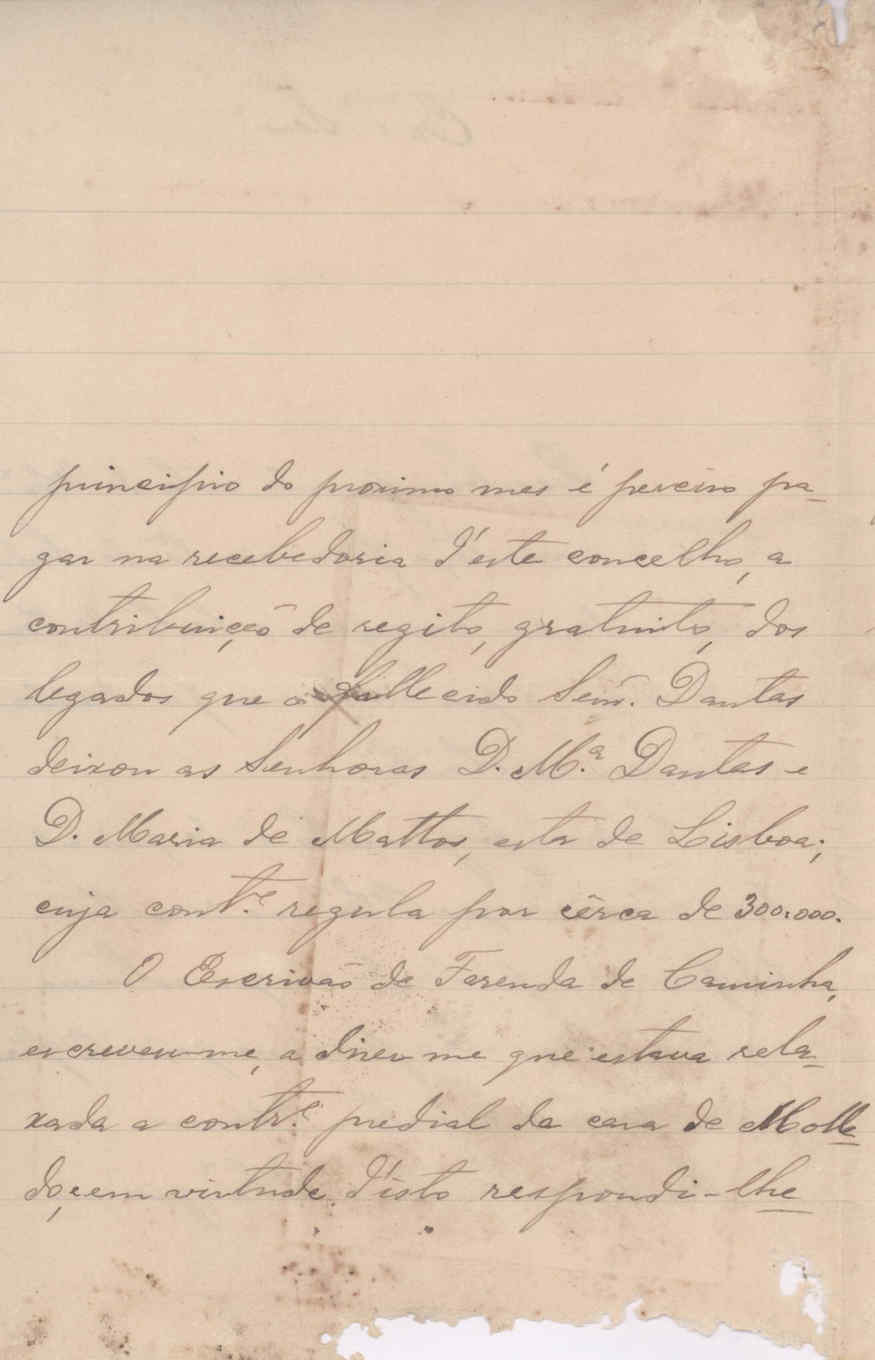 principio do proximo mes é perciso pa-
gar na recebedoria d'este concelho, a
contribuição de regito, gratuito, dos
legados que o fallecido Senr. Dantas
deixou as Senhoras D. M.ª Dantas e
D. Maria de Mattos, esta de Lisboa;
cuja cont.e regula por cêrca de 300.000.
O Escrivão de Fazenda de Caminha,
escreveu-me, a direu me que estava rela-
xada a contr.e predial da casa de Molle
do, e em virtude d'isto respondi-lhe